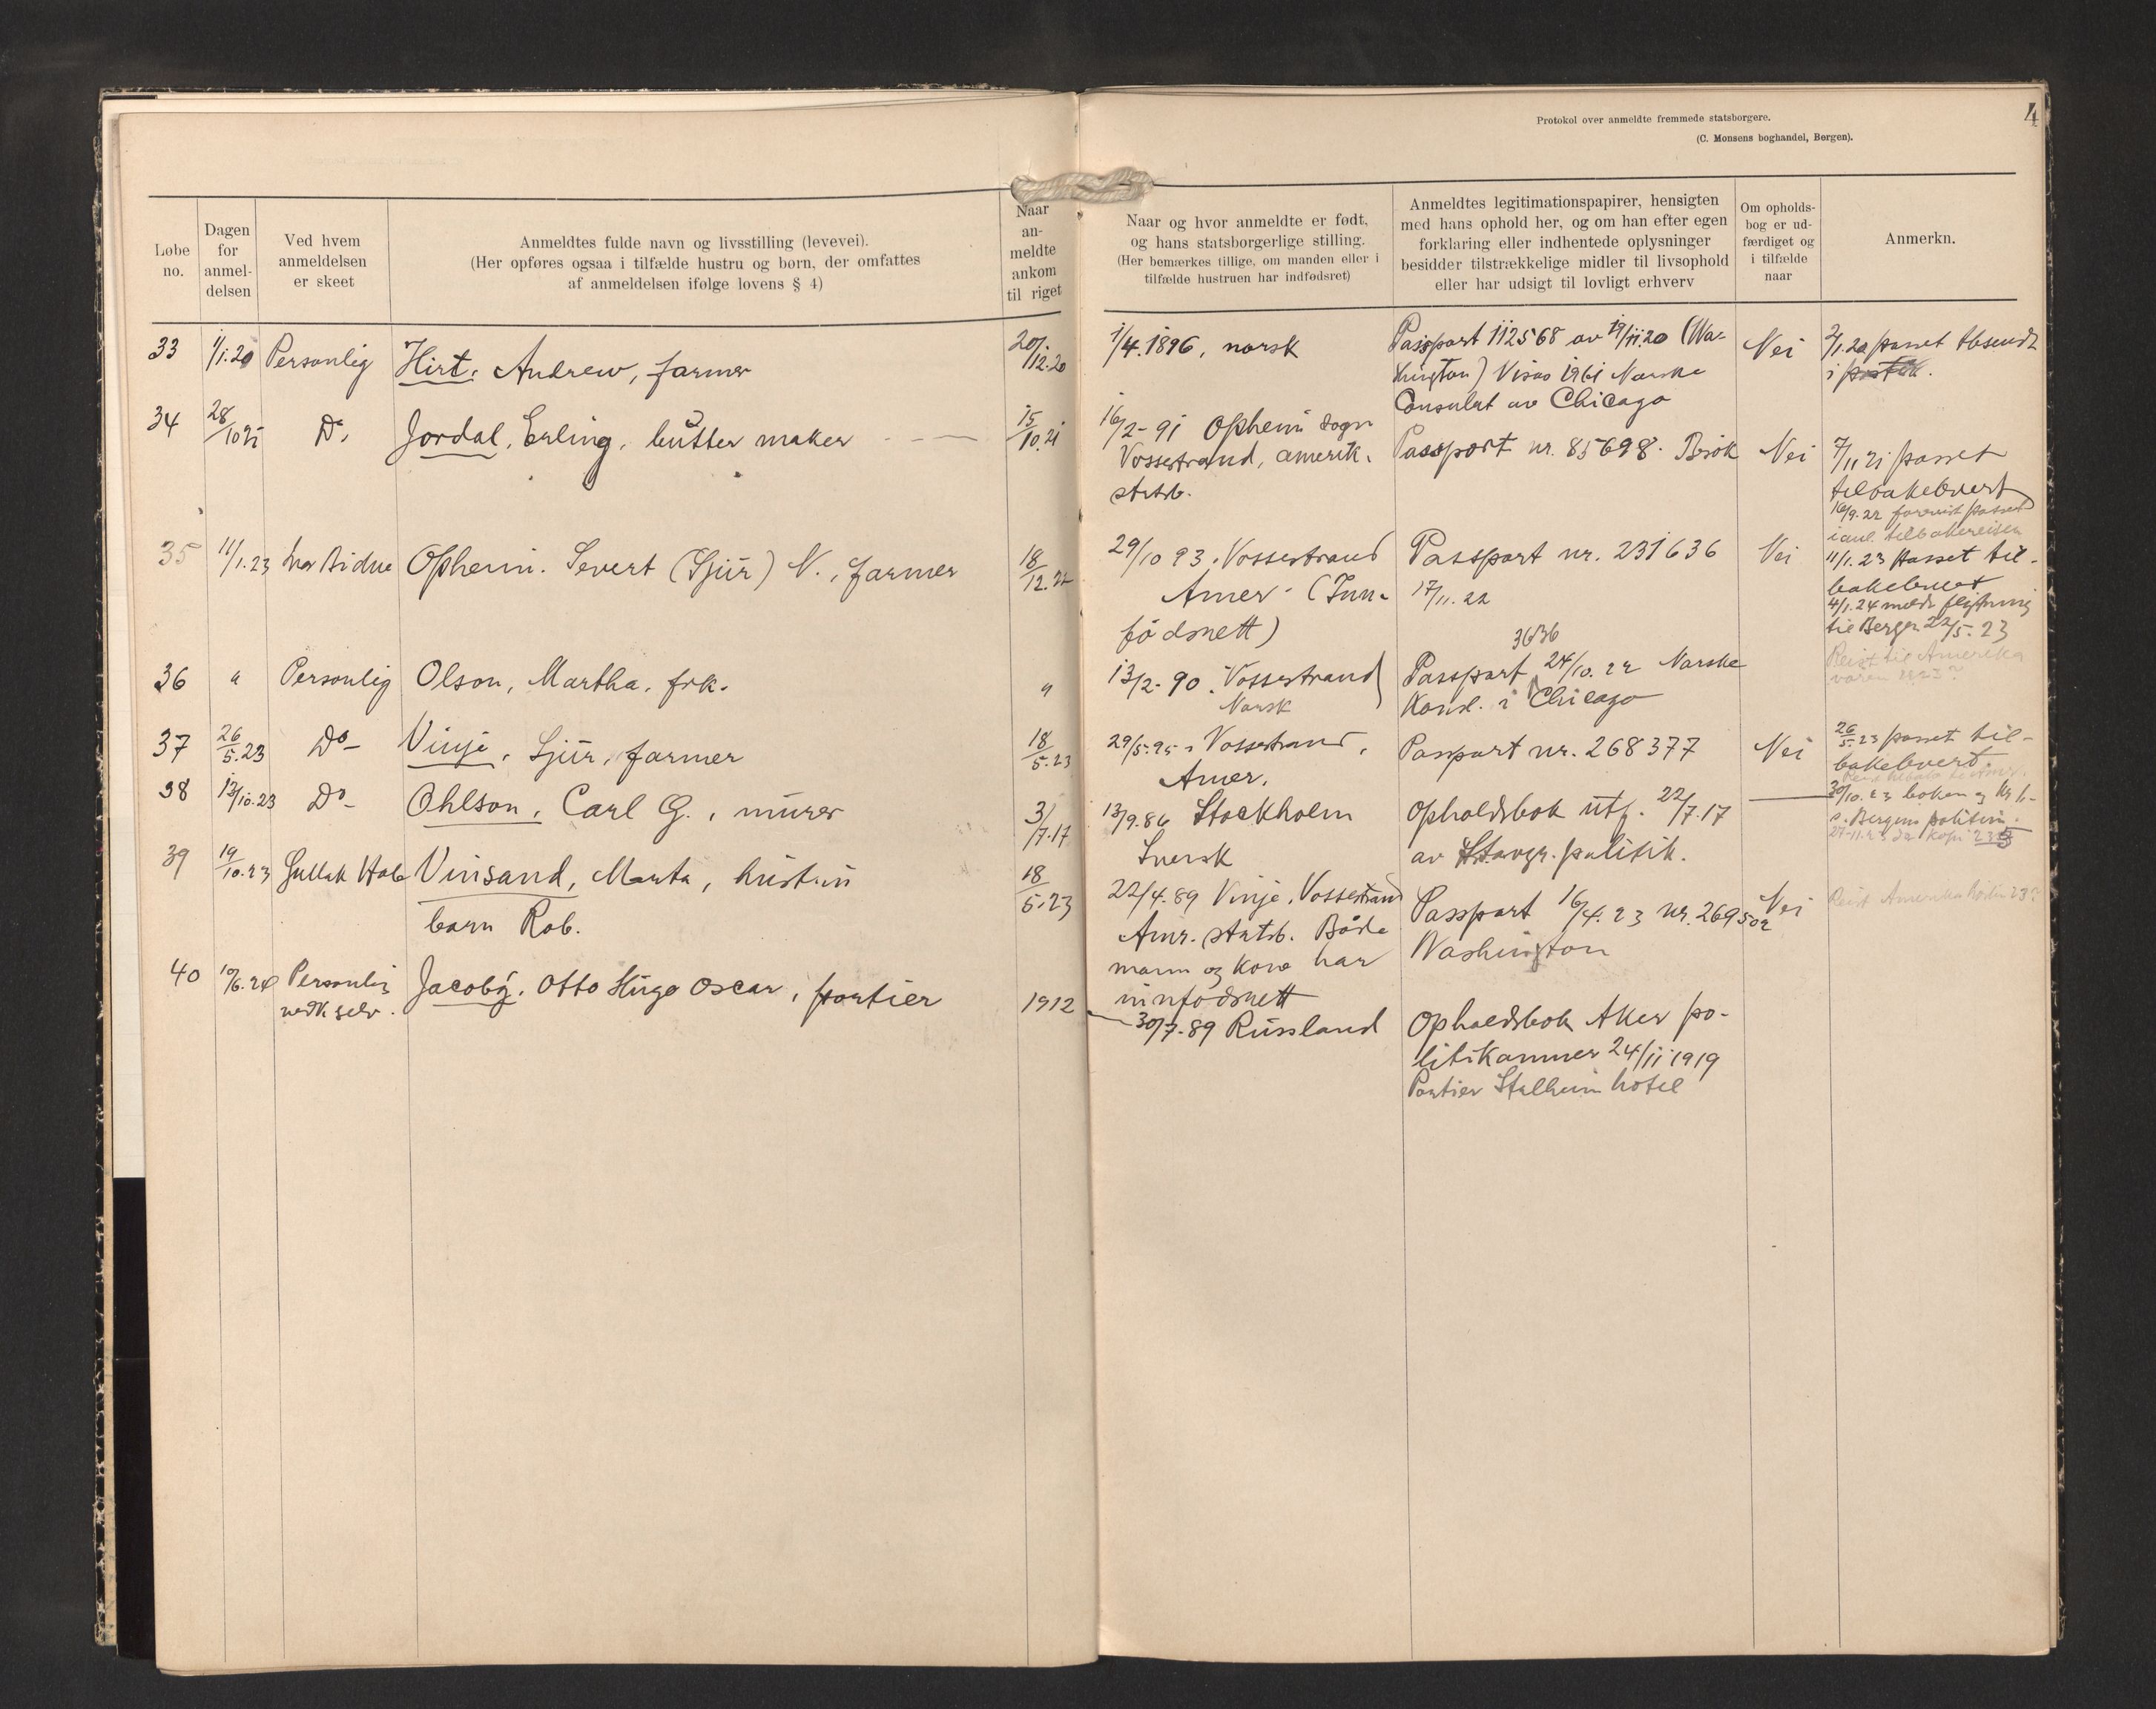 Protokol over anmeldte fremmede statsborgere.
(C. Monsens boghandel, Bergen).
4
Løbe no.
Dagen for anmel- delsen
Ved hvem anmeldelsen er skeet
Anmeldtes fulde navn og livsstilling (levevei).
(Her opføres ogsaa i tilfælde hustru og børn, der omfattes
af anmeldelsen ifølge lovens § 4)
Naar an- meldte ankom til riget
Naar og hvor anmeldte er født,
og hans statsborgerlige stilling.
(Her bemærkes tillige, om manden eller i
tilfælde hustruen har indfødsret)
Anmeldtes legitimationspapirer, hensigten
med hans ophold her, og om han efter egen
forklaring eller indhentede oplysninger
besidder tilstrækkelige midler til livsophold
eller har udsigt til lovligt erhverv
Om opholds- bog er ud- færdiget og i tilfælde naar
Anmerkn.
33 1/1.20 Personlig Hirt, Andrew, farmer 20/12.20
1/4.1896, norsk
Passport 112568 av 19/11.20 (Wa-
shington) Visas 1961 Norske
Consulat av Chicago
Nei
2/1.20 passet tilsendt
i
34 28/10 21 Do Jordal, Erling, butter maker 15/10.21
16/2-91 Opheim sogn
Vossestrand, amerik.
statsb.
Passport nr. 85698. Besøk
Nei
7/11 21 passet
tilbakelevert
16/9.22 forevist passet
i anl. tilbakereisen
35 11/1.23 Opheim. Severt (Sjur) N., farmer 18/12.22
29/10 93. Vossestrand
Amer. (Inn-
fødsrett)
Passport nr. 231636
17/11.22
Nei
11/1.23 Passet til-
bakelevert
4/1.24 meldt flytning
til Bergen 22/5.23
Reist til Amerika
våren
36 " Personlig Olson, Martha, frk. "
13/2-90. Vossestrand
Norsk
3636
Passport 24/10.22 Norske
Konsl. i Chicago
37 26/5.23 Do- Vinje, Sjur, farmer 18/5.23
29/5.95, Vossestrand,
Amer.
Passport nr. 268377
Nei
26/5.23 passet til-
bakelevert.
38 13/10.23 Do- Ohlson, Carl G., murer 3/7.17
13/9.86 Stockholm
Svensk
Opholdsbok utf. 22/7.17
av Stavgr. politik.
30/10.23 boken
Bergens politik.
39 19/10.23 Gullak Vinsand, Marta, hustru
barn Rob. 18/5.23
22/4.89 Vinje, Vossestrand
Amr. statsb. Både
mann og kone har
innfødsrett
Passport 16/4.23 nr. 269502
Washington
Nei
Reist Amerika
40 19/6.24 Personlig
ved selv. Jacoby, Otto Hugo Oscar, portier 1912
30/7-89 Russland
Opholdsbok Aker po-
litikammer 24/11 1919
Portier Stalheim hotel